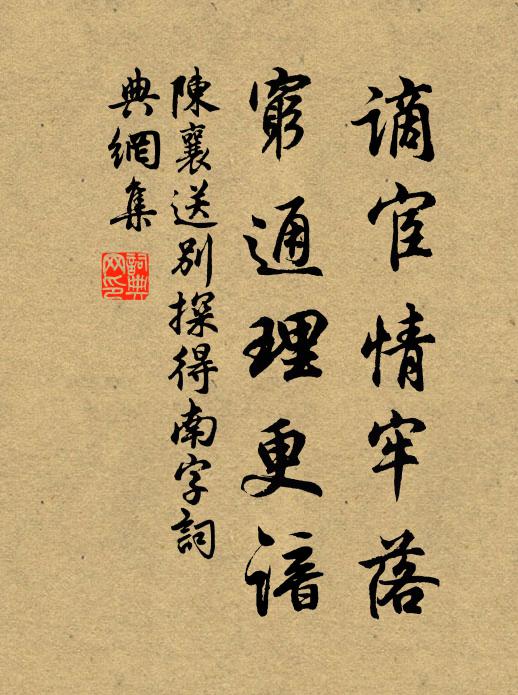 謫宦情牢落
窮通理更諳
陳襄送別探得南字詞
典網集
詞典網印